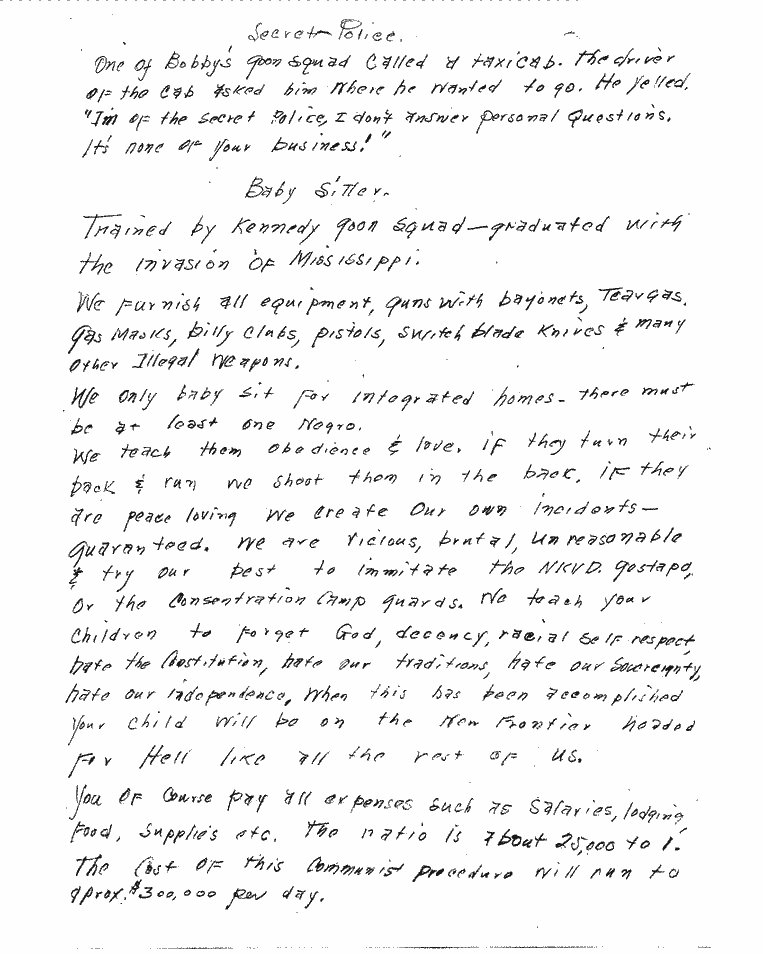 Secret Police.
One of Bobby's goon squad called a taxicab. The driver
of the cab asked him where he wanted to go. He yelled,
"I'm of the Secret Police, I don't answer personal Questions.
It's none of your business!"
Baby Sitter.
Trained by Kennedy goon squad—graduated with
the invasion of Mississippi.
We furnish all equipment, guns with bayonets, Teargas.
gas Masks, billy clubs, pistols, switch blade knives & many
other Illegal weapons.
We only baby sit for integrated homes - there must
be at least one Negro.
We teach them obedience & love. if they turn their
back & run we shoot them in the back. if they
are peace loving we create our own incidents—
guaranteed. We are vicious, brutal, unreasonable
& try our best to immitate the NKVD. gestapo,
or the Consentration Camp guards. We teach your
children to forget God, decency, racial self respect,
hate the Constitution, hate our traditions, hate our Sovereignty,
hate our independence, when this has been accomplished
your child will be on the New Frontier headed
for Hell like all the rest of us.
You of course pay all expenses such as salaries, lodging
food, supplies etc. The ratio is about 25,000 to 1.
The cost of this Communist procedure will run to
aprox. $300,000 per day.